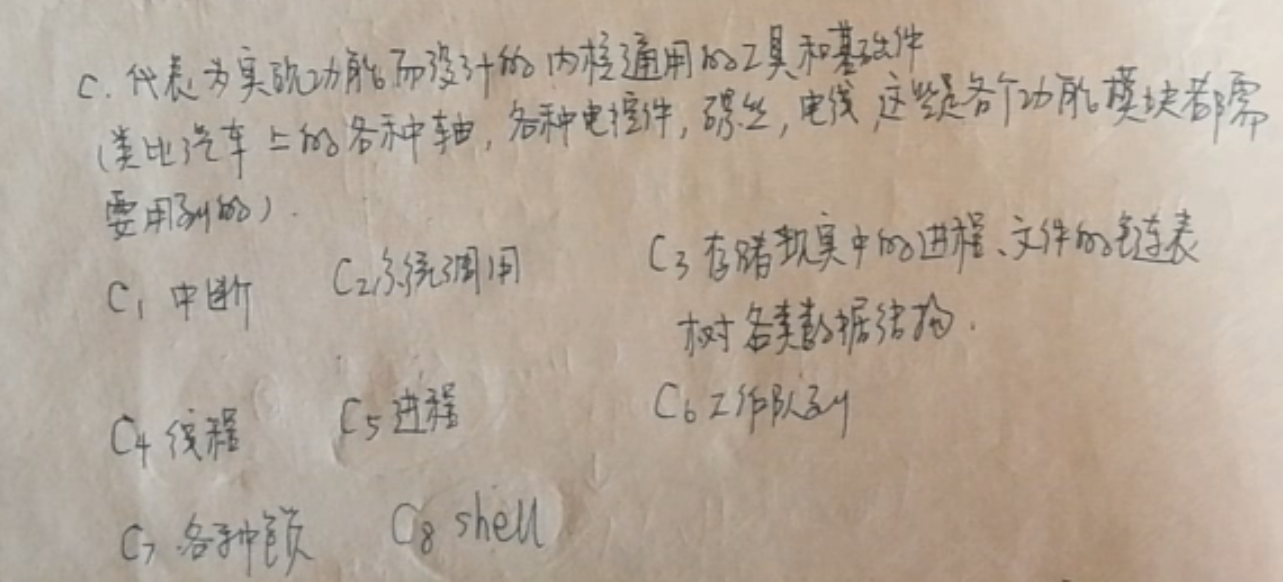 C. 代表为实现功能而设计的内核通用的工具和基础件
(类比汽车上的各种轴, 各种电控件, 螺丝, 电线, 这些是各个功能模块都需
要用到的).
C1 中断 C2 系统调用 C3 存储现实中的进程、文件的链表
树各类数据结构.
C4 线程 C5 进程 C6 工作队列
C7 各种锁 C8 shell